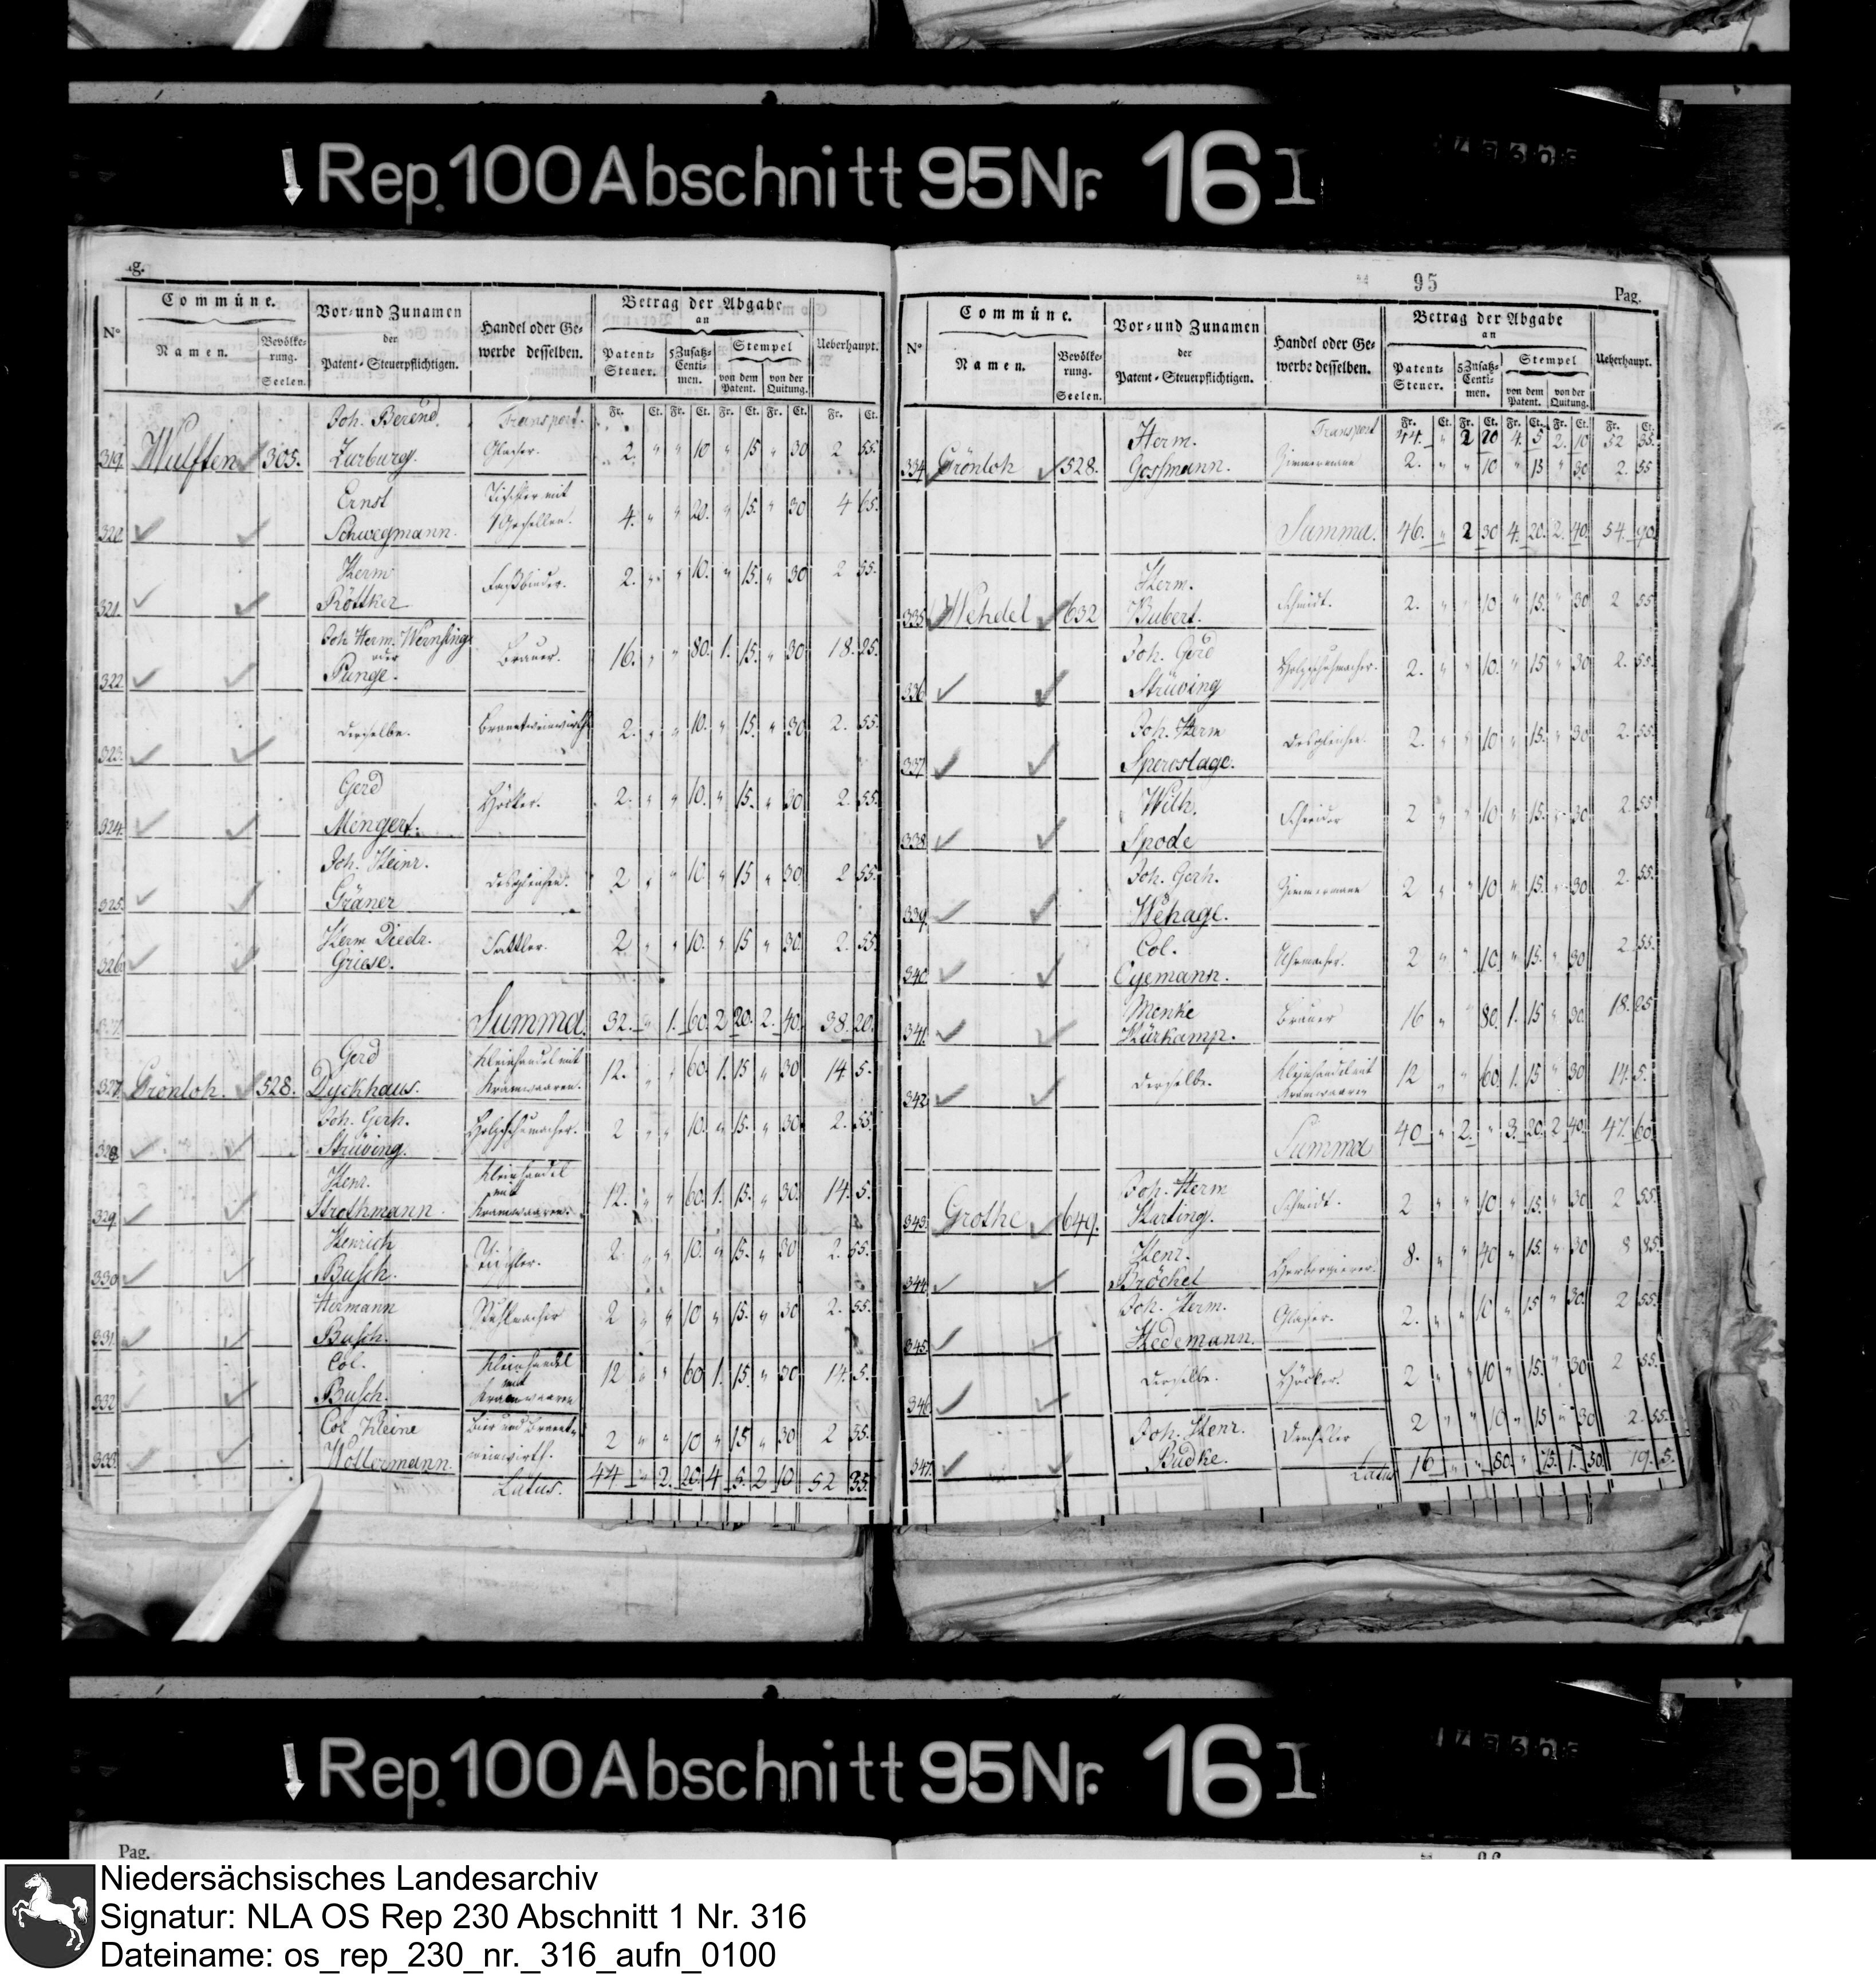 Rep. 100 Abschnitt 95 Nr. 16 I
95
Pag.
No
Commüne.
Namen.
Bevölkerung.
Seelen.
Vor- und Zunamen
der
Patent-Steuerpflichtigen.
Handel oder Gewerbe desselben.
Betrag der Abgabe
an
Patent-Steuer.
5 Zusatz-Centimen.
Stempel
von dem Patent.
von der Quitung.
Ueberhaupt.
Fr. Ct. Fr. Ct. Fr. Ct. Fr. Ct. Fr. Ct.
Transport.
319. Wulften 305. Joh. Berend Zurburg. Glaser. 2. " " 10 " 15 " 30 2 55.
320. Ernst Schwegmann. Tischler mit 1 Gesellen. 4. " " 20. " 15. " 30 4 65.
321. Herm Röttker Faßbinder. 2. " " 10. " 15. " 30 2 55.
322. Joh Herm. Wernsing oder Punge. Brauer. 16. " " 80. 1. 15. " 30 18. 25.
323. derselbe. Branteweinwirth 2. " " 10. " 15. " 30 2. 55.
324. Gerd Mengert. Höcker. 2. " " 10. " 15. " 30 2. 55.
325. Joh. Heinr. Gräner desgleichen. 2 " " 10. " 15 " 30 2 55.
326. Herm Diedr. Griese. Sattler. 2 " " 10. " 15 " 30. 2. 55.
Summa. 32. " 1. 60. 2 20. 2. 40. 38. 20.
327. Grönloh. 528. Gerd Dyckhaus. Kleinhandel mit Kramwaaren. 12. " " 60. 1. 15 " 30 14. 5.
328. Joh. Gerh. Strüving. Holzschumacher. 2 " " 10. " 15. " 30. 2. 55.
329. Henr. Strothmann. Kleinhandel mit Kramwaaren. 12. " " 60. 1. 15. " 30. 14. 5.
330. Henrich Busch. Tischler. 2. " " 10. " 15. " 30 2. 55.
331. Hermann Busch. Stuhlmacher 2 " " 10 " 15. " 30 2. 55.
332. Col. Busch. Kleinhandel mit Kramwaaren 12 " " 60 1. 15. " 30 14. 5.
333. Col. Kleine Woltermann. Bier und Branteweinwirth. 2 " " 10 " 15 " 30 2 55.
Latus. 44 " 2. 20. 4 5. 2 10 52 35.
No
Commüne.
Namen.
Bevölkerung.
Seelen.
Vor- und Zunamen
der
Patent-Steuerpflichtigen.
Handel oder Gewerbe desselben.
Betrag der Abgabe
an
Patent-Steuer.
5 Zusatz-Centimen.
Stempel
von dem Patent.
von der Quitung.
Ueberhaupt.
Fr. Ct. Fr. Ct. Fr. Ct. Fr. Ct. Fr. Ct.
Transport 44. " 2 20 4. 5 2. 10 52 35.
334. Grönloh 528. Herm. Gosmann. Zimmermann 2. " " 10 " 15 " 30 2. 55
Summa. 46. " 2 30 4. 20. 2. 40. 54. 90.
335. Wehdel 632 Herm. Bubert. Schmidt. 2. " " 10 " 15. " 30 2 55
336. Joh. Gerd Strüving Holzschuhmacher. 2. " " 10. " 15 " 30 2. 55.
337. Joh. Herm Sperostage. desgleichen. 2. " " 10 " 15. " 30 2. 55.
338. Wilh. Spode Schneider 2 " " 10 " 15. " 30. 2. 55
339. Joh. Gerh. Wehage. Zimmermann 2 " " 10 " 15. " 30 2. 55.
340. Col. Eyemann. Uhrmacher. 2 " " 10. " 15. " 30 2 55.
341. Menke Kürkamp. Brauer 16 " " 80. 1. 15 " 30. 18. 25
342. derselbe. Kleinhandel mit Kramwaaren 12 " " 60. 1. 15 " 30 14. 5.
Summa 40 " 2. " 3. 20. 2 40. 47. 60.
343. Grothe 649. Joh. Herm Harting. Schmidt. 2 " " 10 " 15. " 30 2 55.
344. Henr. Bröckel Herbergierer. 8. " " 40 " 15. " 30 8 85.
345. Joh. Herm. Hedemann. Glaser. 2. " " 10 " 15 " 30. 2 55.
346. derselbe. Höcker. 2 " " 10 " 15. " 30 2 55.
347. Joh. Henr. Budke. Drechsler 2 " " 10 " 15 " 30 2. 55.
Latus 16 " " 80. " 75. 1. 50. 19. 5.
Rep. 100 Abschnitt 95 Nr. 16 I
Pag.
Niedersächsisches Landesarchiv
Signatur: NLA OS Rep 230 Abschnitt 1 Nr. 316
Dateiname: os_rep_230_nr._316_aufn_0100